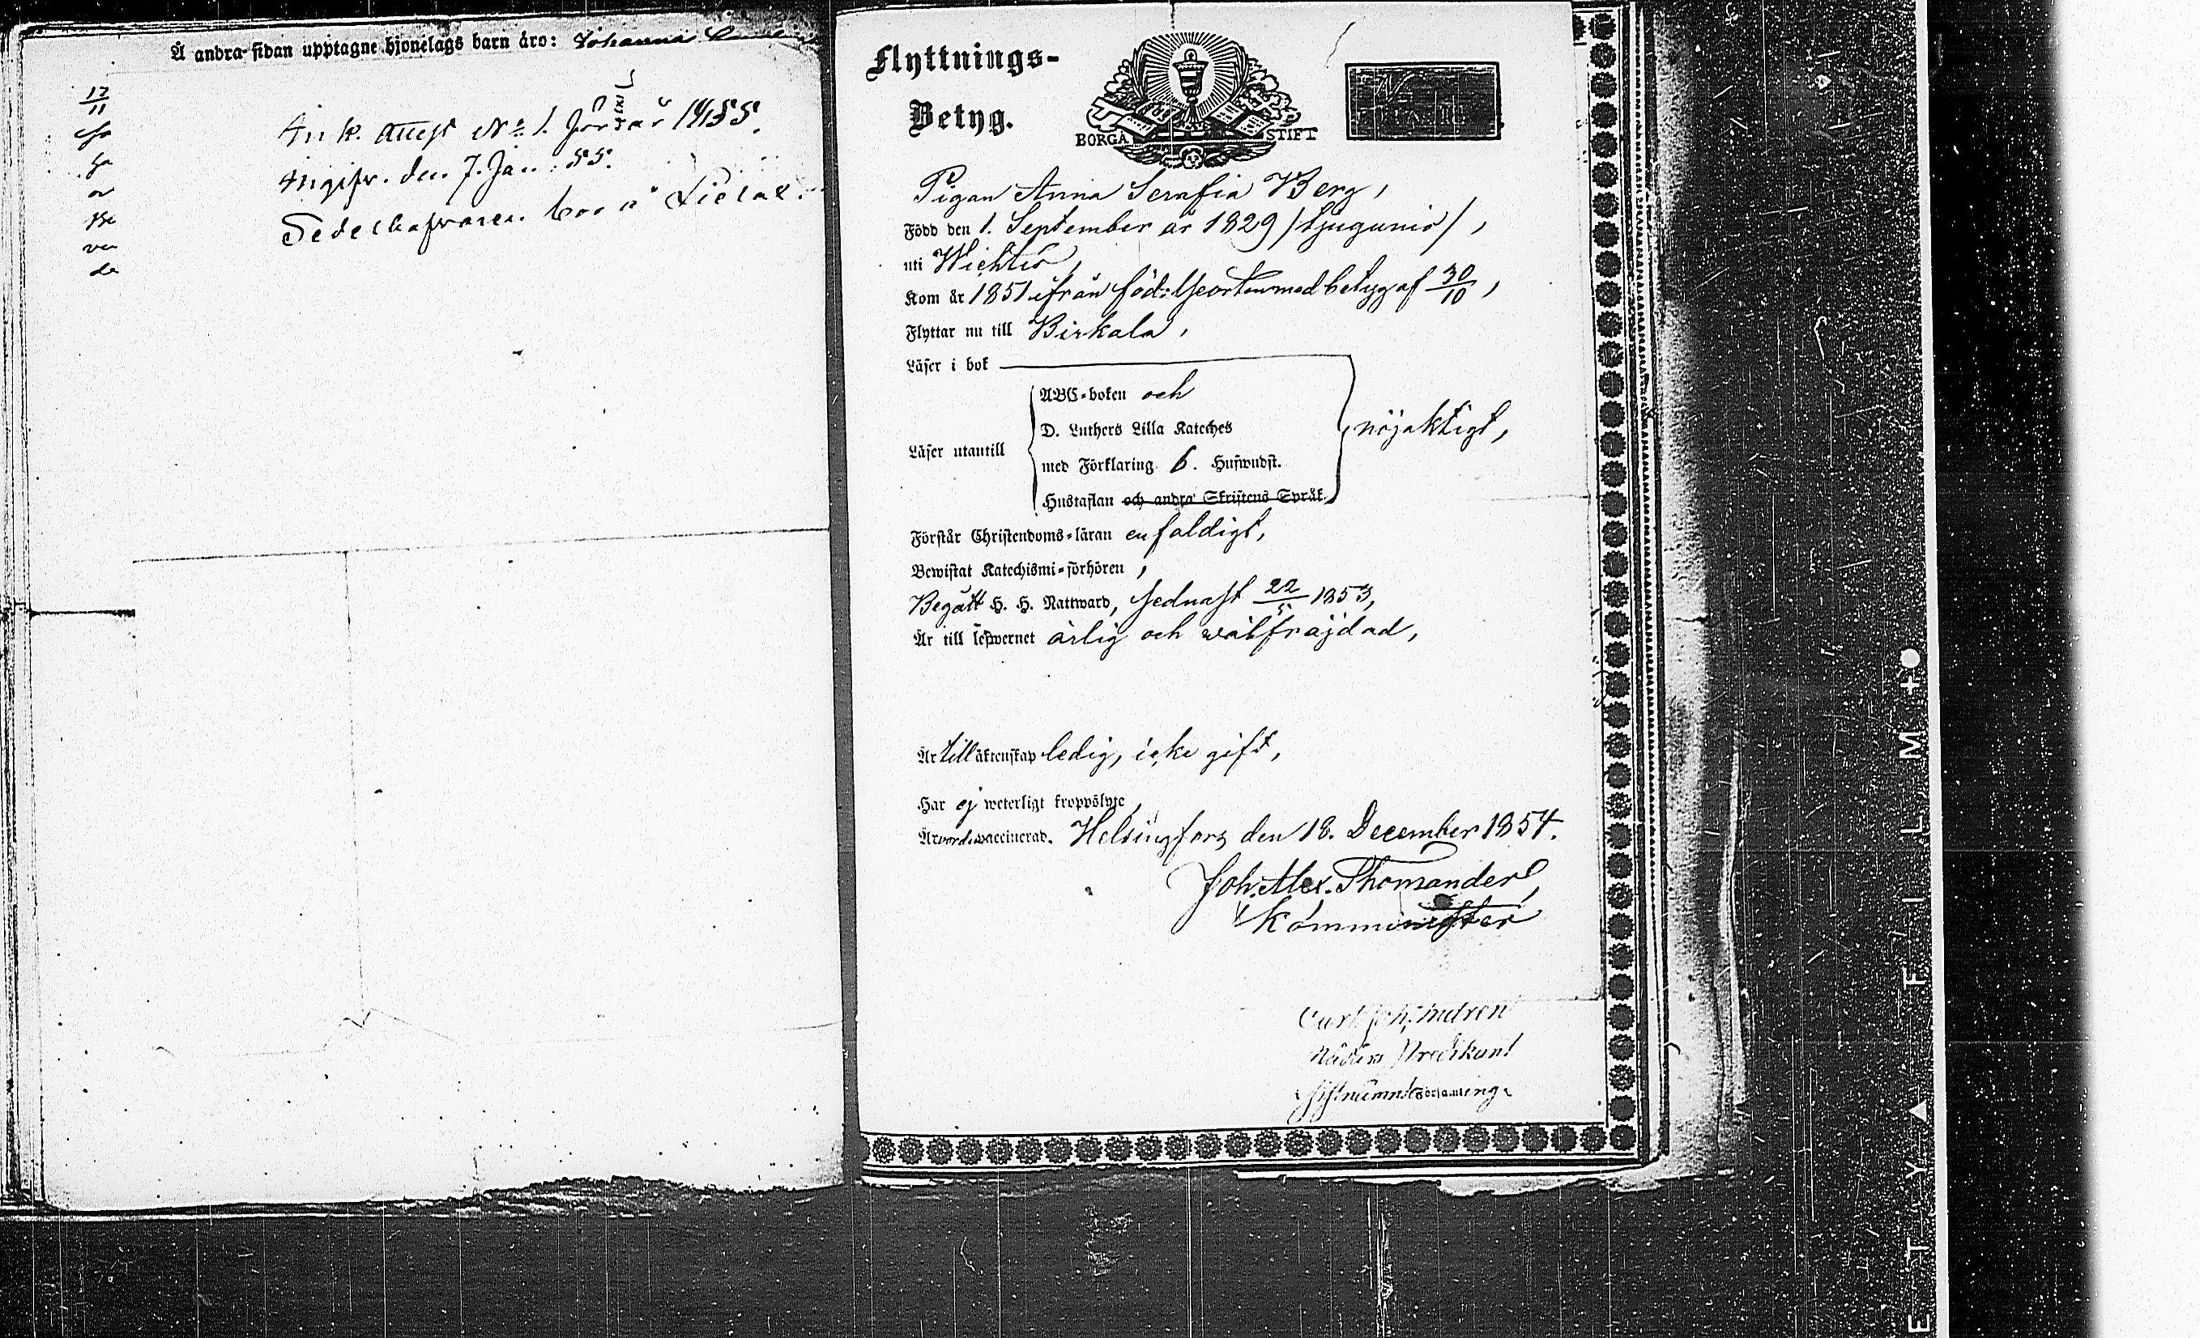 Å andra sidan upptagne hjonelags barn äro: Johanna
12/11
Ank. Attest No 1. för år 1855.
Angifv. den 7. Jan. 55.
bor i
Flyttnings-
Betyg.
BORGÅ STIFT
Pigan Anna Serafia Berg,
Född den 1. September år 1829 /tjugunio/,
uti Wichtis,
Kom år 1851 ifrån födelseorten med betyg af 30/10,
Flyttar nu till Birkala,
Läser i bok
ABC-boken och
D. Luthers Lilla Kateches
Läser utantill
med Förklaring 6. Hufwudst.
Hustaflan och andra Skriftens Språk
nöjaktigt,
Förstår Christendoms-läran enfaldigt,
Bewistat Katechismi-förhören,
Begått H. H. Nattward, sednast 22/5 1853,
Är till lefwernet ärlig och wälfräjdad,
Är till äktenskap ledig, icke gift,
Har ej weterligt kroppslyte,
Är vord. vaccinerad. Helsingfors den 18. December 1854.
Joh. Alex. Thomander,
Komminister